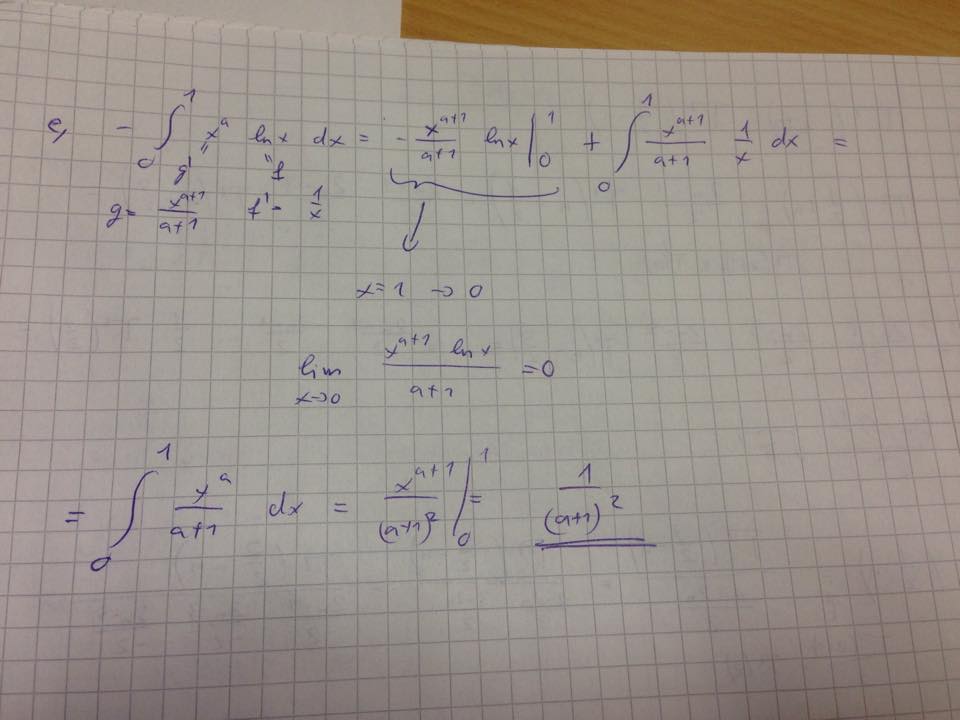 e, - ∫₀¹ xᵃ ln x dx = - xᵃ⁺¹/(a+1) ln x |₀¹ + ∫₀¹ xᵃ⁺¹/(a+1) 1/x dx =
g' = xᵃ, ln x = f
g = xᵃ⁺¹/(a+1) f' = 1/x
x=1 → 0
lim x→0 xᵃ⁺¹ ln x/(a+1) = 0
= ∫₀¹ xᵃ/(a+1) dx = xᵃ⁺¹/(a+1)² |₀¹ = 1/(a+1)²